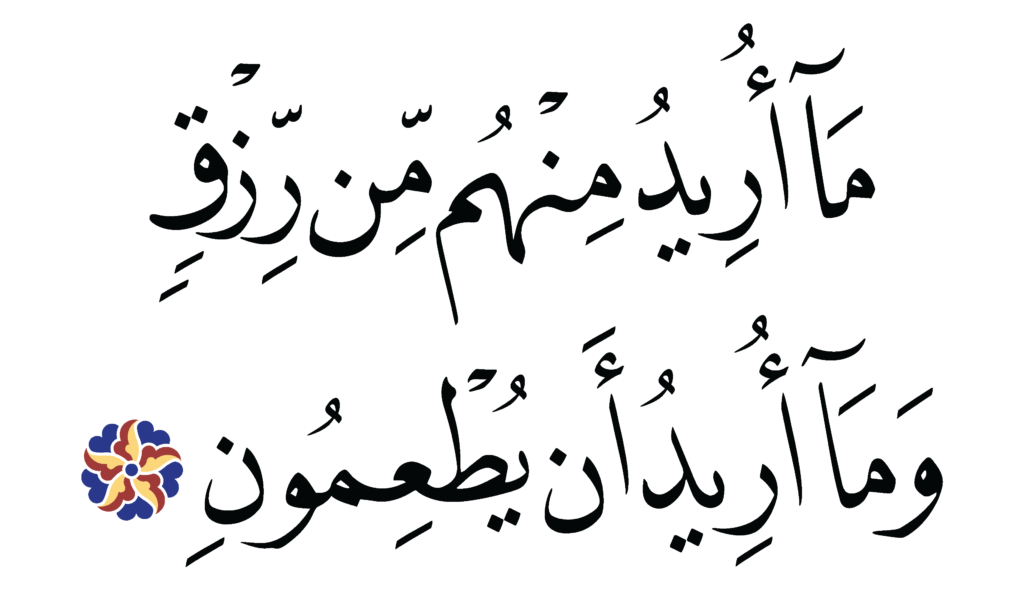 مَآ أُرِيدُ مِنْهُم مِّن رِّزْقٍ
وَمَآ أُرِيدُ أَن يُطْعِمُونِ